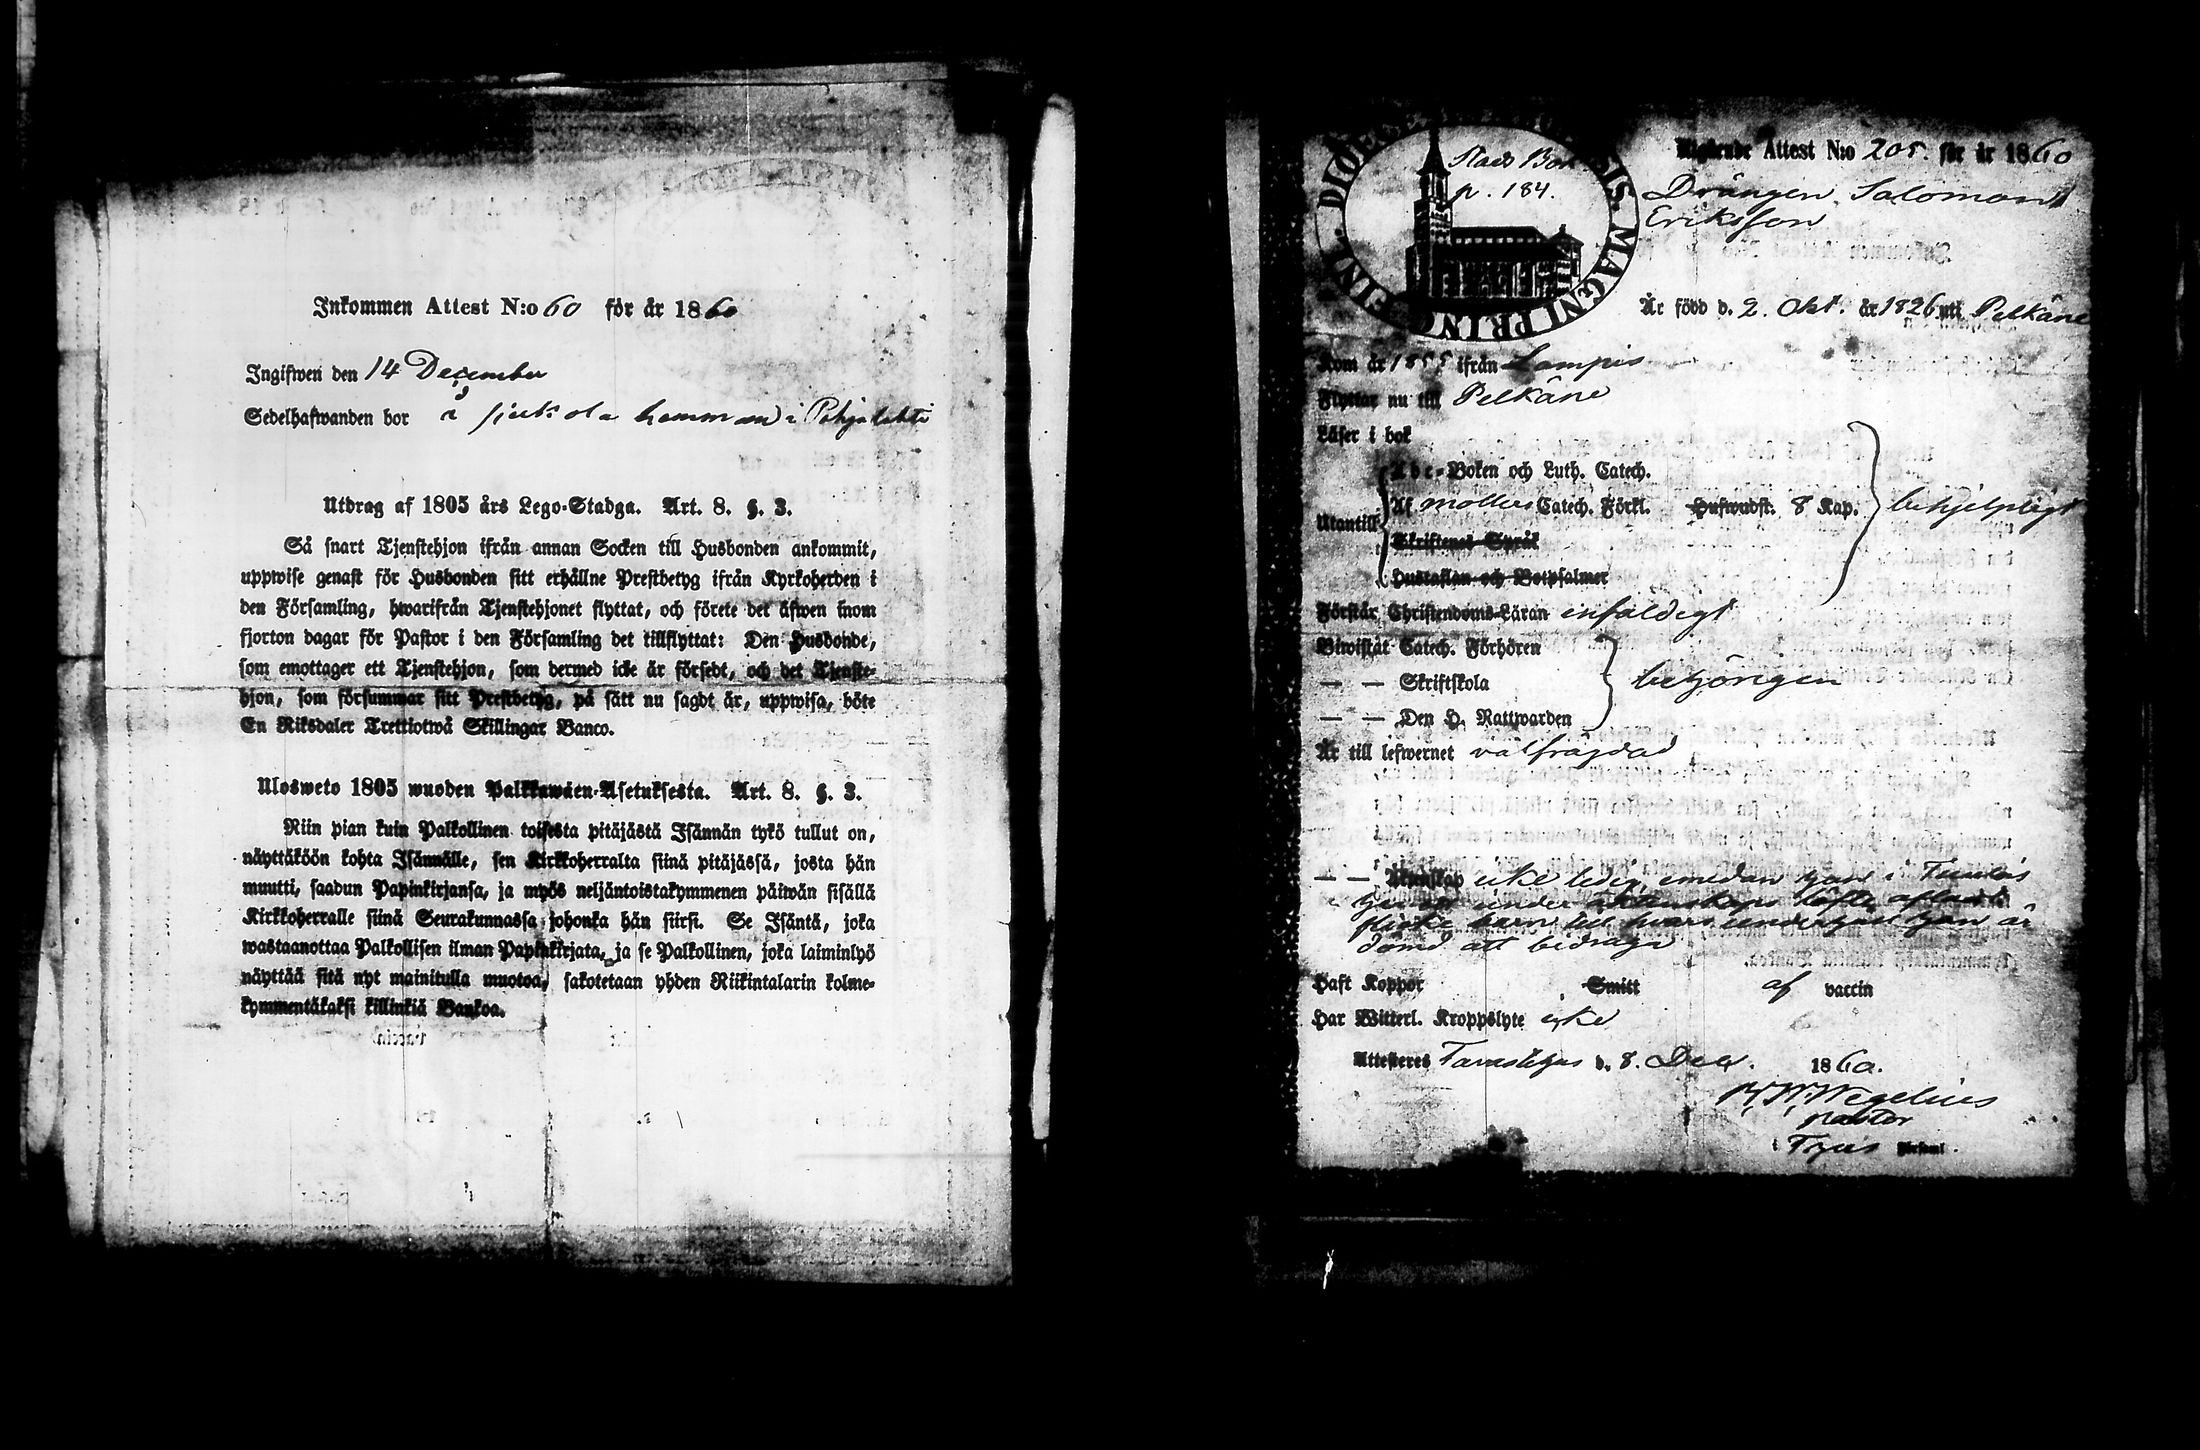 Inkommen Attest N:o 60 för år 1860
Ingifwen den 14 December
Sedelhafwanden bor å hemman i Pohjalahti
Utdrag af 1805 års Lego-Stadga. Art. 8. §. 3.
Så snart Tjenstehjon ifrån annan Socken till Husbonden ankommit,
uppwise genast för Husbonden sitt erhållne Prestbetyg ifrån Kyrkoherden i
den Församling, hwarifrån Tjenstehjonet flyttat, och förete det äfwen inom
fjorton dagar för Pastor i den Församling det tillflyttat: Den Husbonde,
som emottager ett Tjenstehjon, som dermed icke är försedt, och det Tjenste-
hjon, som försummar sitt Prestbetyg, på sätt nu sagdt är, uppwisa, böte
En Riksdaler Trettiotwå Skillingar Banco.
Ulosweto 1805 wuoden Palkkawäen-Asetuksesta. Art. 8. §. 3.
Niin pian kuin Palkollinen toisesta pitäjästä Isännän tykö tullut on,
näyttäköön kohta Isännälle, sen Kirkkoherralta siinä pitäjässä, josta hän
muutti, saadun Papinkirjansa, ja myös neljäntoistakymmenen päiwän sisällä
Kirkkoherralle siinä Seurakunnassa johonka hän siirsi. Se Isäntä, joka
wastaanottaa Palkollisen ilman Papinkirjata, ja se Palkollinen, joka laiminlyö
näyttää sitä nyt mainitulla muotoa, sakotetaan yhden Riikintalarin kolme-
kymmentäkaksi killinkiä Bankoa.
DIOECE SIS. MAGNI PRINC. FINL.
Stads Bok
p. 184.
Utgående Attest N:o 205. för år 1860
Drängen Salomon
Eriksson
Är född d. 2 Okt. år 1826 uti Pelkäne
Kom år 1855 ifrån Lampis
Flyttar nu till Pelkäne
Läser i bok
Abc-Boken och Luth. Catech.
Utantill Af mollers Catech. Förkl. Hufwudst. 8 Kap. behjelpligt
Skriftenes Språk
Hustaflan och Botpsalmer
Förstår Christendoms-Läran enfaldigt
Biwistat Catech. Förhören
— — Skriftskola behörigen
— — Den H. Nattwarden
Är till lefwernet välfrägdad
— — Äktenskap icke ledig, emedan han i Tuulos
under äktenskaps löfte aflat
barn till hvars underhåll han är
dömd att bidraga
Haft Koppor Smitt af vaccin
Har Witterl. Kroppslyte icke
Attesteras Tavastehus d. 8. Dec. 1860.
Wegelius
pastor
i Församl.